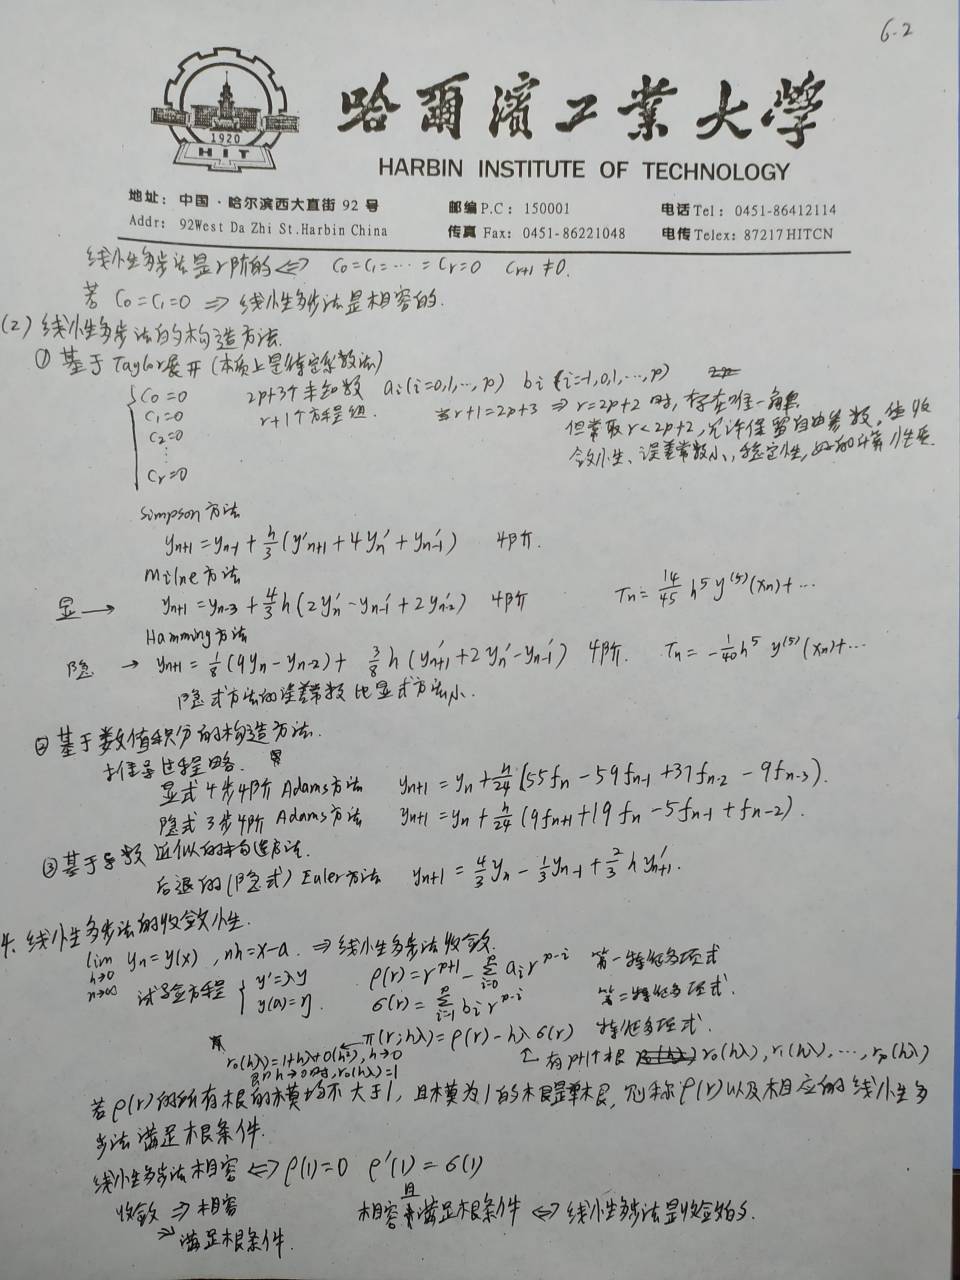 6-2
1920
HIT
哈爾濱工業大學
HARBIN INSTITUTE OF TECHNOLOGY
地址: 中国·哈尔滨西大直街 92 号 邮编 P.C: 150001 电话 Tel: 0451-86412114
Addr: 92West Da Zhi St.Harbin China 传真 Fax: 0451-86221048 电传 Telex: 87217 HITCN
线性多步法是r阶的 ⟺ C₀=C₁=⋯=Cᵣ=0 Cᵣ₊₁≠0.
若 C₀=C₁=0 ⇒ 线性多步法是相容的.
(2) 线性多步法的构造方法.
① 基于Taylor展开(本质上是待定系数法)
C₀=0 2p+3个未知数 aᵢ(i=0,1,…,p) bᵢ(i=-1,0,1,…,p)
C₁=0 r+1个方程组. 当r+1=2p+3 ⇒ r=2p+2 时, 存在唯一解
C₂=0 但常取 r<2p+2, 允许保留自由参数, 使收
⋮ 敛性、误差常数小, 稳定性, 好的计算性质.
Cᵣ=0
Simpson方法
yₙ₊₁=yₙ₋₁+h/3(y'ₙ₊₁+4yₙ'+yₙ₋₁') 4阶.
Milne方法
显 → yₙ₊₁=yₙ₋₃+4/3h(2yₙ'-yₙ₋₁'+2yₙ₋₂') 4阶 Tₙ=14/45 h⁵y⁽⁵⁾(xₙ)+⋯
Hamming方法
隐 → yₙ₊₁=1/8(9yₙ-yₙ₋₂)+3/8h(yₙ₊₁'+2yₙ'-yₙ₋₁') 4阶. Tₙ=-1/40h⁵y⁽⁵⁾(xₙ)+⋯
隐式方法的误差常数比显式方法小.
② 基于数值积分的构造方法.
推导过程略.
显式4步4阶Adams方法 yₙ₊₁=yₙ+h/24(55fₙ-59fₙ₋₁+37fₙ₋₂-9fₙ₋₃).
隐式3步4阶Adams方法 yₙ₊₁=yₙ+h/24(9fₙ₊₁+19fₙ-5fₙ₋₁+fₙ₋₂).
③ 基于导数近似的构造方法.
后退的(隐式)Euler方法 yₙ₊₁=4/3yₙ-1/3yₙ₋₁+2/3hyₙ₊₁'.
4. 线性多步法的收敛性.
lim yₙ=y(x), nh=x-a. ⇒ 线性多步法收敛.
h→0
n→∞
试验方程 { y'=λy ρ(r)=rᵖ⁺¹-∑ᵢ₌₀ᵖ aᵢrᵖ⁻ⁱ 第一特征多项式
y(a)=η. σ(r)=∑ᵢ₌₋₁ᵖ bᵢrᵖ⁻ⁱ 第二特征多项式.
π(r;hλ)=ρ(r)-hλσ(r) 特征多项式.
r₀(hλ)=1+hλ+O(h²), h→0 ↑ 有p+1个根 r₀(hλ), r₁(hλ), …, rₚ(hλ)
即h→0时, r₀(hλ)=1
若ρ(r)的所有根的模均不大于1, 且模为1的根是单根, 则称ρ(r)以及相应的线性多
步法满足根条件.
线性多步法相容 ⟺ ρ(1)=0 ρ'(1)=σ(1)
收敛 ⇒ 相容 相容且满足根条件 ⟺ 线性多步法是收敛的.
⇒ 满足根条件.